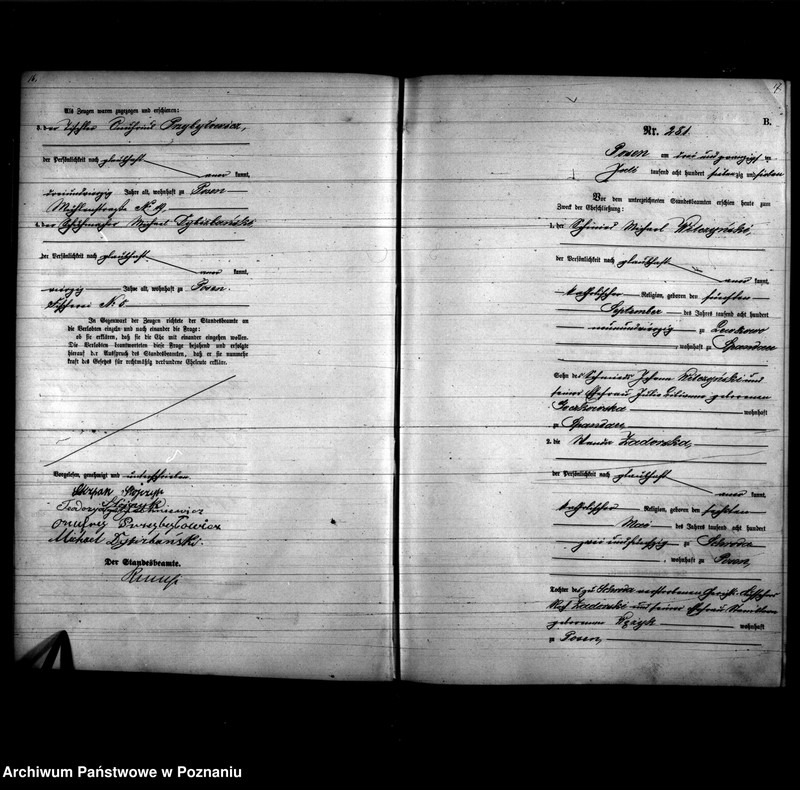 16.
Als Zeugen waren zugezogen und erschienen:
3. der Tischler Onufried Przybyłowicz,
der Persönlichkeit nach glaubhaft
kannt,
dreiundvierzig Jahre alt, wohnhaft zu Posen
Mühlenstraße N. 9,
4. der Schuhmacher Michael
der Persönlichkeit nach glaubhaft
kannt,
vierzig Jahre alt, wohnhaft zu Posen
Fischerei N. 5.
In Gegenwart der Zeugen richtete der Standesbeamte an
die Verlobten einzeln und nach einander die Frage:
ob sie erklären, daß sie die Ehe mit einander eingehen wollen.
Die Verlobten beantworteten diese Frage bejahend und erfolgte
hierauf der Ausspruch des Standesbeamten, daß er sie nunmehr
kraft des Gesetzes für rechtmäßig verbundene Eheleute erkläre.
Vorgelesen, genehmigt und unterschrieben
Teodozya
Onufry Przybyłowicz
Michael
Der Standesbeamte.
17.
B.
Nr. 251.
Posen am drei und zwanzigsten
Juli tausend acht hundert siebenzig und sieben
Vor dem unterzeichneten Standesbeamten erschien heute zum
Zweck der Eheschließung:
1. der Schmied Michael Wilczyński,
der Persönlichkeit nach glaubhaft
kannt,
katholischer Religion, geboren den fünften
September des Jahres tausend acht hundert
neunundvierzig zu
, wohnhaft zu Spandau
Sohn des Schmieds Johann Wilczyński und
seiner Ehefrau Julie geborenen
wohnhaft
zu Spandau,
2. die Wanda Zadorska,
der Persönlichkeit nach glaubhaft
kannt,
katholischer Religion, geboren den
Mai des Jahres tausend acht hundert
zwei und fünfzig zu Schroda
, wohnhaft zu Posen,
Tochter des zu Schroda verstorbenen
Zadorski und seiner Ehefrau
geborenen wohnhaft
zu Posen,
Archiwum Państwowe w Poznaniu